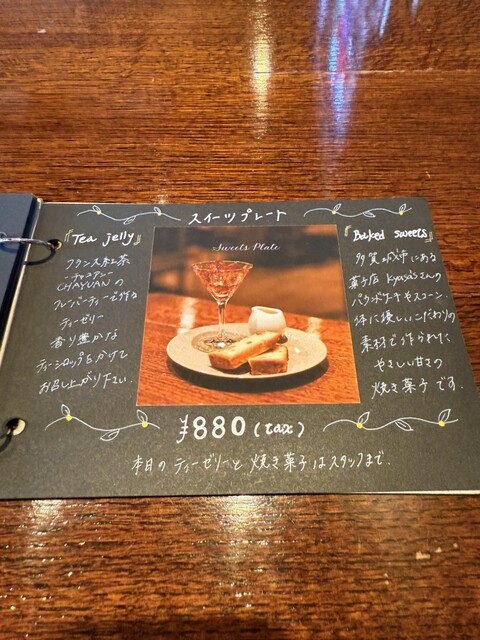 スイーツプレート
『Tea jelly』
フランス紅茶
チャユアン
CHAYUANの
フレーバーティーで作る
ティーゼリー
香り豊かな
ティーシロップをかけて
お召し上がり下さい。
Sweets Plate
『Baked sweets』
多賀城市にある
菓子店 kyosa'sさんの
パウンドケーキやスコーン。
体に優しいこだわりの
素材で作られた
やさしい甘さの
焼き菓子です。
¥880(tax)
本日のティーゼリーと焼き菓子はスタッフまで。